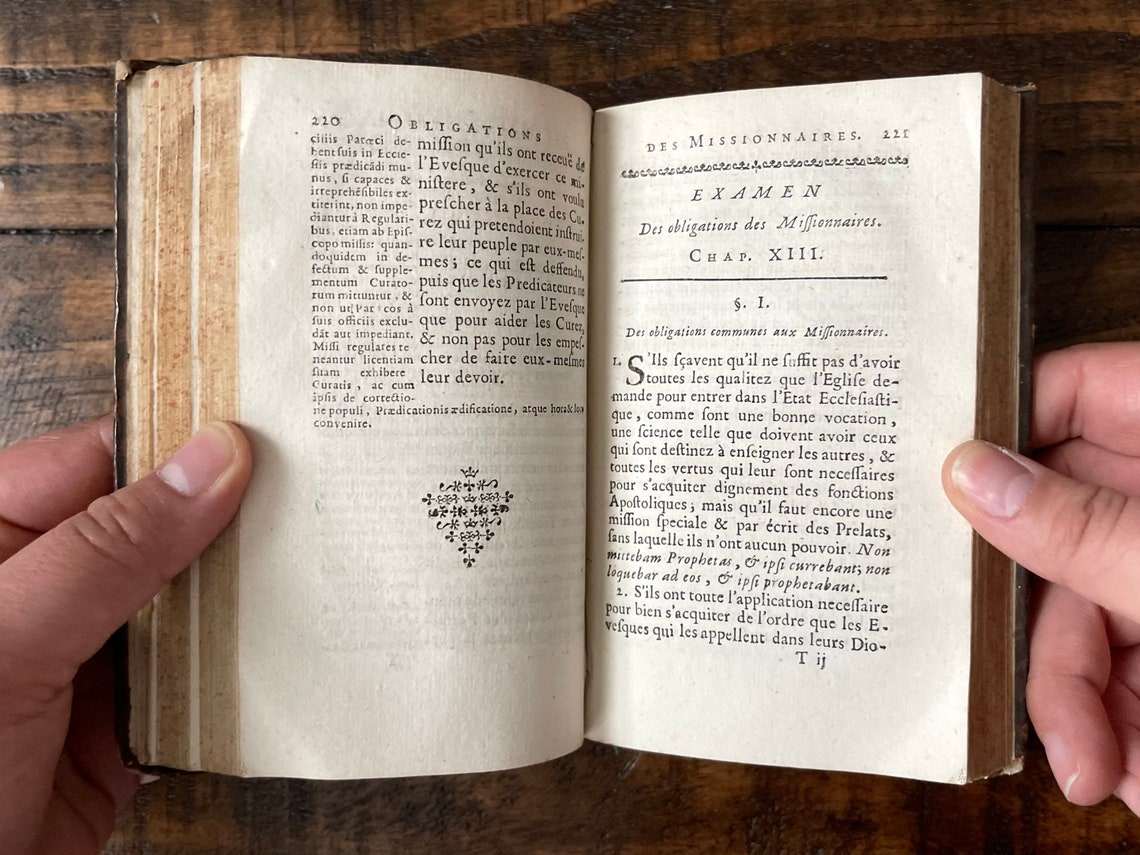 220 OBLIGATIONS
ciliis Parœci de-
bent suis in Eccle-
siis prædicãdi mu-
nus, si capaces &
irreprehẽsibiles ex-
titerint, non impe-
diantur à Regulari-
bus, etiam ab Epis-
copo missis: quan-
doquidem in de-
fectum & supple-
mentum Curato-
rum mittuntur, &
non ut Parœcos à
suis officiis exclu-
dãt aut impediant.
Missi regulares te
neantur licentiam
suam exhibere
Curatis, ac cum
ipsis de correctio-
ne populi, Prædicationis ædificatione, atque hora & loco
convenire.
mission qu'ils ont receuë de
l'Evesque d'exercer ce mi-
nistere, & s'ils ont voulu
prescher à la place des Cu-
rez qui pretendoient instrui-
re leur peuple par eux-mes-
mes; ce qui est deffendu,
puis que les Predicateurs ne
sont envoyez par l'Evesque
que pour aider les Curez,
& non pas pour les empes-
cher de faire eux-mesmes
leur devoir.
DES MISSIONNAIRES. 221
EXAMEN
Des obligations des Missionnaires.
CHAP. XIII.
§. I.
Des obligations communes aux Missionnaires.
1. S'Ils sçavent qu'il ne suffit pas d'avoir
toutes les qualitez que l'Eglise de-
mande pour entrer dans l'Etat Ecclesiasti-
que, comme sont une bonne vocation,
une science telle que doivent avoir ceux
qui sont destinez à enseigner les autres, &
toutes les vertus qui leur sont necessaires
pour s'acquiter dignement des fonctions
Apostoliques; mais qu'il faut encore une
mission speciale & par écrit des Prelats,
sans laquelle ils n'ont aucun pouvoir. Non
mittebam Prophetas, & ipsi currebant; non
loquebar ad eos, & ipsi prophetabant.
2. S'ils ont toute l'application necessaire
pour bien s'acquiter de l'ordre que les E-
vesques qui les appellent dans leurs Dio-
T ij